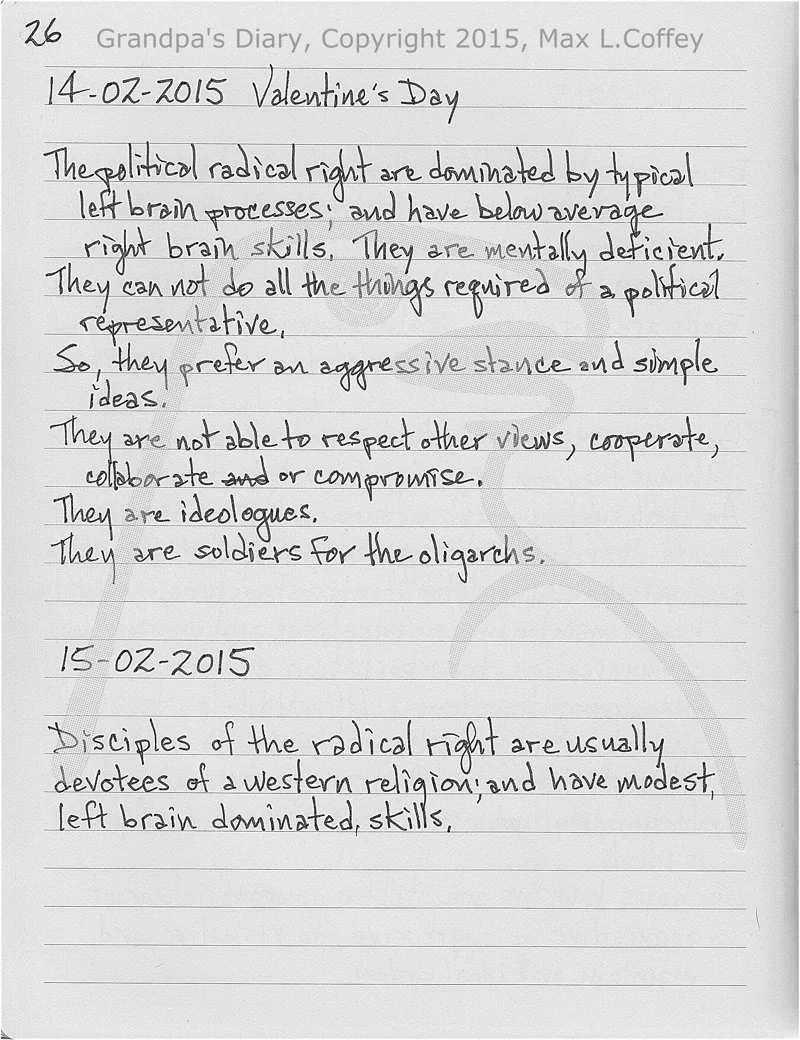 26
Grandpa's Diary, Copyright 2015, Max L.Coffey
14-02-2015 Valentine's Day
The political radical right are dominated by typical
left brain processes; and have below average
right brain skills. They are mentally deficient.
They can not do all the things required of a political
representative.
So, they prefer an aggressive stance and simple
ideas.
They are not able to respect other views, cooperate,
collaborate and or compromise.
They are ideologues.
They are soldiers for the oligarchs.
15-02-2015
Disciples of the radical right are usually
devotees of a western religion; and have modest,
left brain dominated, skills.